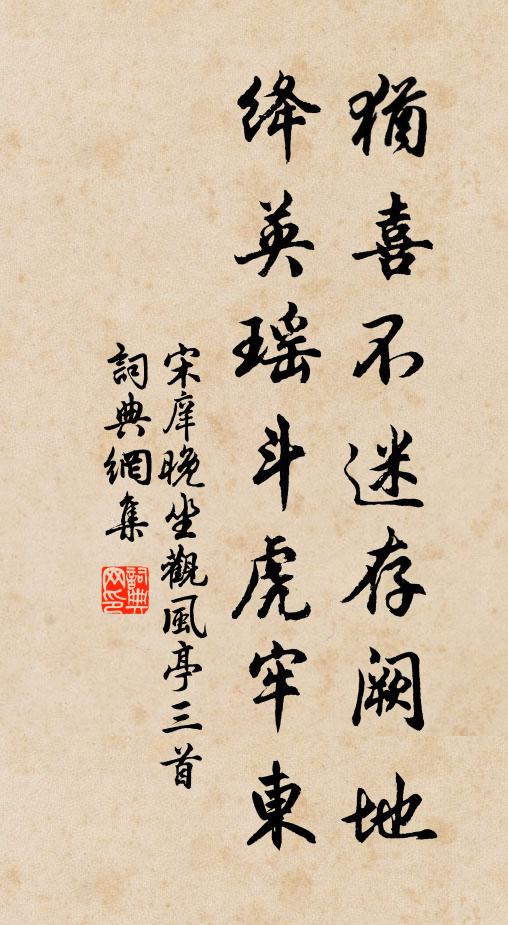 猶喜不迷存闕地
絳英瑶斗虎牢東
宋庠晚坐觀風亭三首
詞典網集
詞典网印